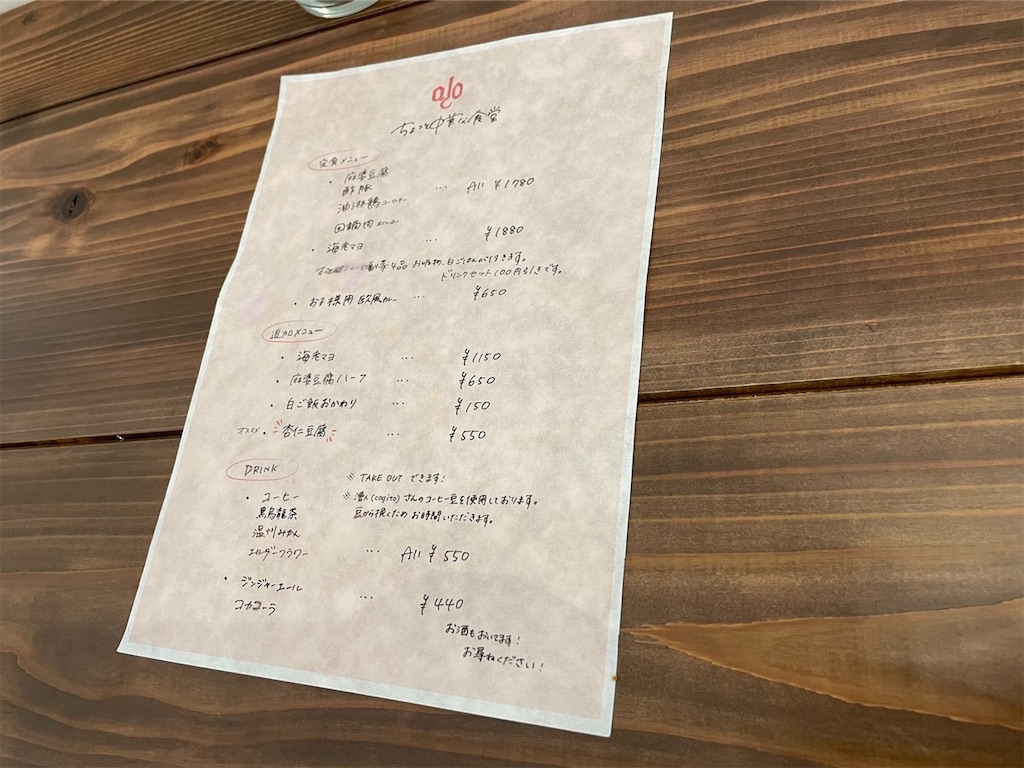 ちょっと中華な食堂
定食メニュー
・麻婆豆腐
酢豚 … All ¥1780
油淋鶏
回鍋肉
・海老マヨ … ¥1880
副菜4品 お味噌汁 白ごはんが付きます。
ドリンクセット100円引きです。
・お子様用 欧風カレー … ¥650
追加メニュー
・海老マヨ … ¥1150
・麻婆豆腐ハーフ … ¥650
・白ご飯おかわり … ¥150
オススメ ・杏仁豆腐 … ¥550
DRINK
※ TAKE OUT できます!
・コーヒー
※ 漕人(cogito)さんのコーヒー豆を使用しております。
黒烏龍茶
豆から挽くため お時間いただきます。
温州みかん
エルダーフラワー … All ¥550
・ジンジャーエール
コカコーラ … ¥440
お酒もおいてます!
お尋ねください!